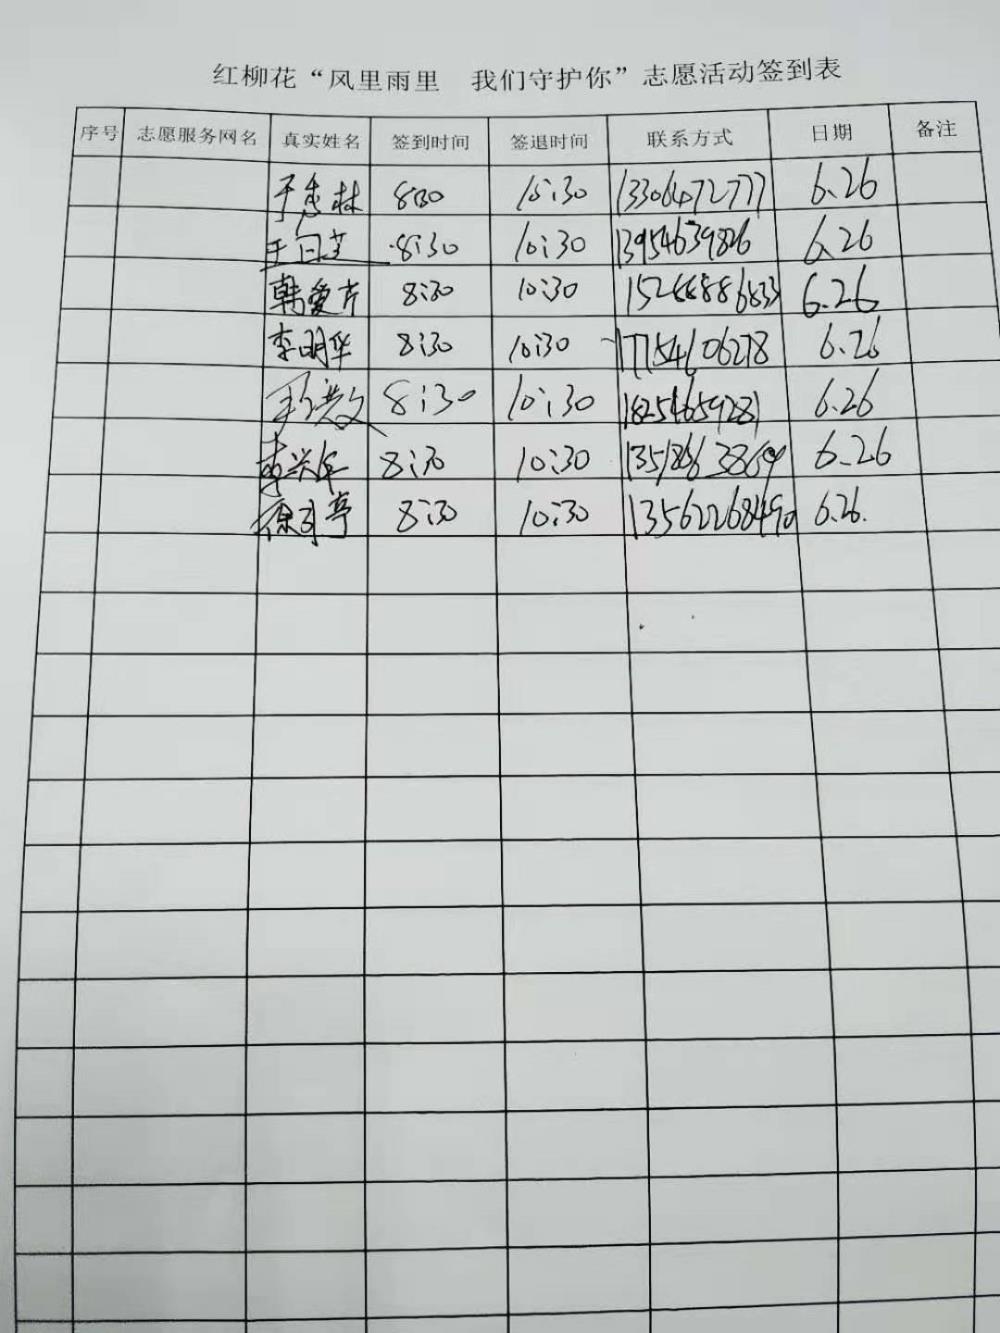 红柳花“风里雨里 我们守护你”志愿活动签到表
序号 志愿服务网名 真实姓名 签到时间 签退时间 联系方式 日期 备注
于秀林 8:30 10:30 13306472777 6.26
王白芝 8:30 10:30 13954639826 6.26
韩爱芹 8:30 10:30 6.26
李明华 8:30 10:30 17754606278 6.26
8:30 10:30 18254659281 6.26
李兴华 8:30 10:30 6.26
徐月亭 8:30 10:30 13562268490 6.26.